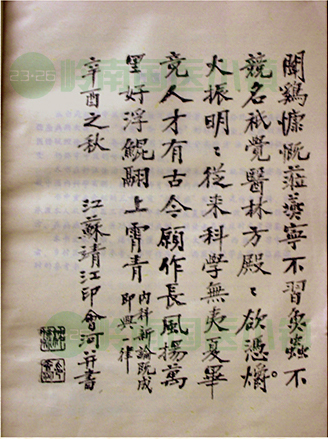 聞鷄慷慨寧不習魚蟲不
競名祇覺醫林方殿〻欲憑爝
火振明〻從来科學無夷夏畢
竟人才有古今願作長風揚萬
里好浮鯤翮上霄青
内科新論既成
即興一律
辛酉之秋 江蘇靖江印會河并書
23-26